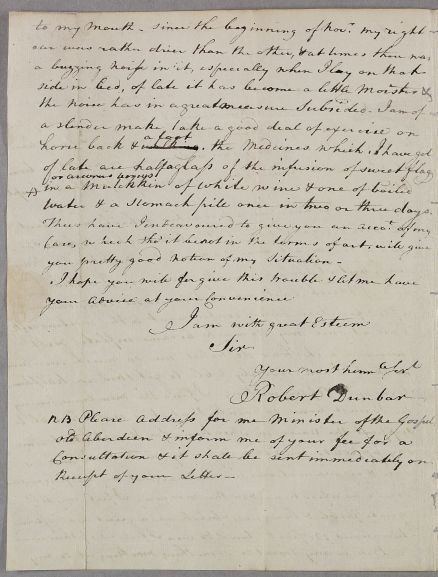 to my Mouth - since the beginning of Novr. my right
ear was rather drier than the other, & at times there was
a buzzing noise in it, especially when I lay on that
side in bed, of late it has become a little moister &
the noise has in a great measure subsided. I am of
a slender make, take a good deal of exercise on
horse back & a foot. the Medicines which I have got
of late are half a glass of the infusion of sweet flag
(or acorus
in a Mutchkin of white wine & one of boiled
water & a stomach pill once in two or three days.
Thus have I endeavoured to give you an acct. of my
Case, which tho' it be not in the terms of art, will give
you pretty good notion of my Situation -
I hope you will forgive this trouble & let me have
your advice at your Convenience
I am with great Esteem
Sir
Your most humle Servt
Robert Dunbar
NB Please Address for me Minister of the Gospel
old Aberdeen & inform me of your fee for a
Consultation & it shall be sent immediately on
Receipt of your Letter -